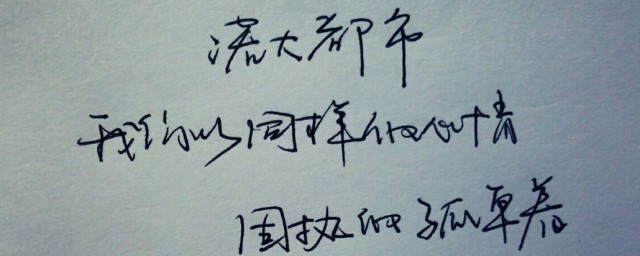 偌大都市
我们以同样的心情
固执的孤单着